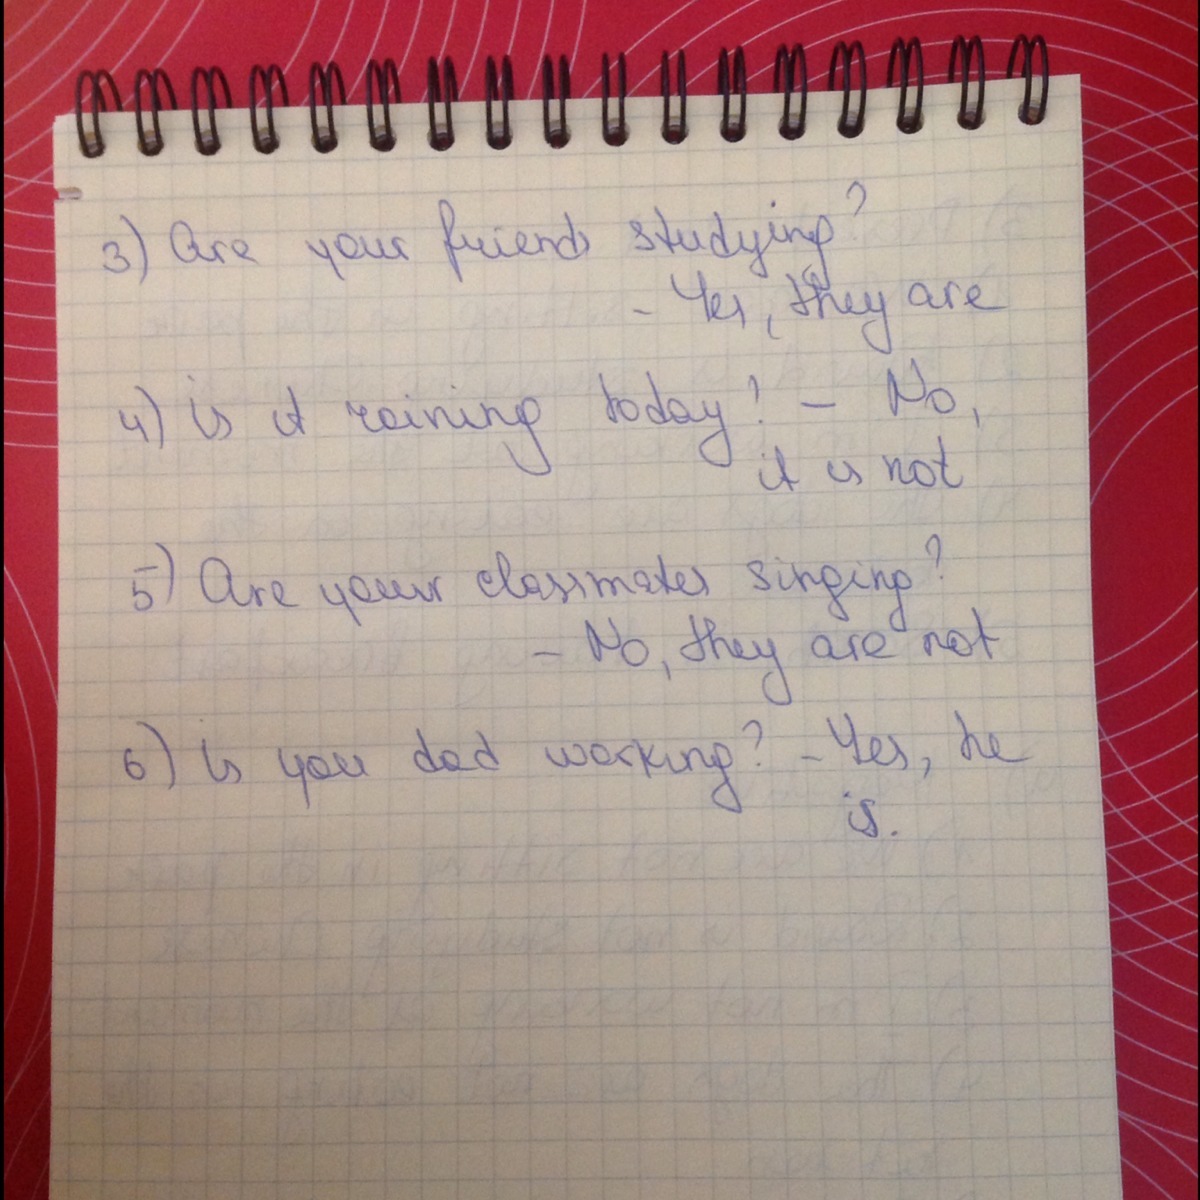 3) Are your friends studying?
- Yes, they are
4) is it raining today? - No,
it is not
5) Are your classmates singing?
- No, they are not
6) is you dad working? - Yes, he
is.